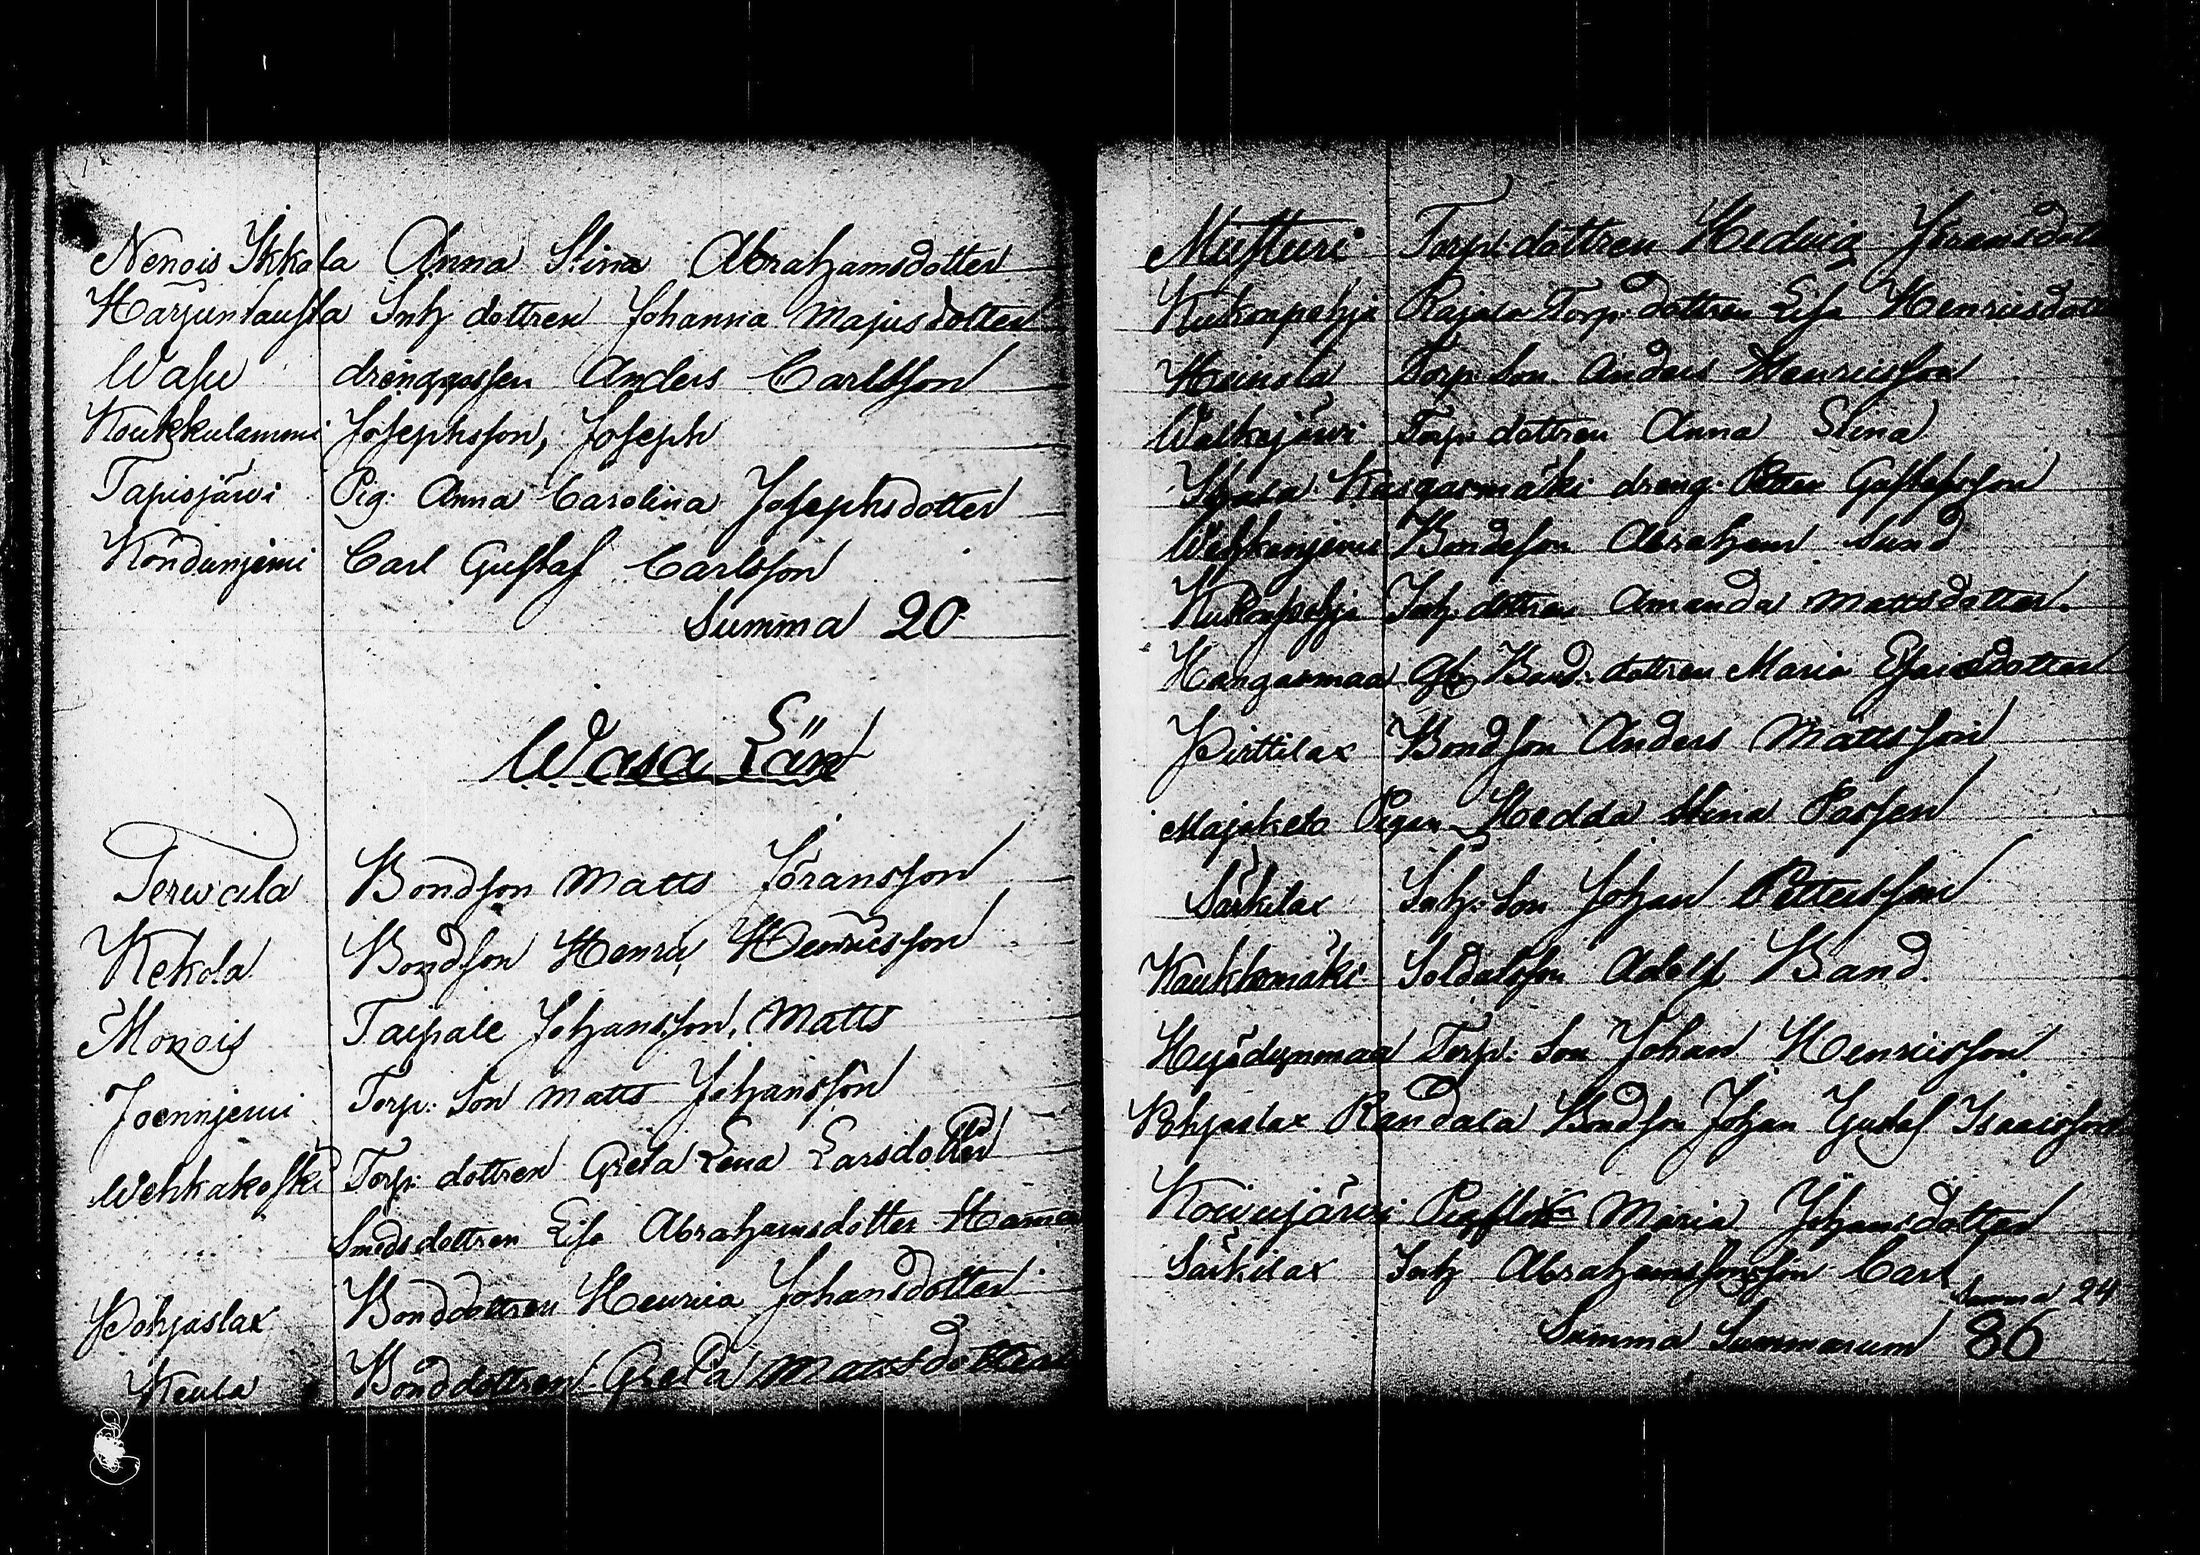 Nenois Ikkala Anna Stina Abrahamsdotter
Harjuntausta Inh dottren Johanna Majusdotter
Wasu drenggossen Anders Carlsson
Koukkulammi Josephsson, Joseph
Tapiojärvi Pig: Anna Carolina Josephsdotter
Köndänjemi Carl Gustaf Carlsson
Summa 20
Wasa Län
Terwala Bondson Matts Jöransson
Kekola Bondson Henric Henricsson
Monois Taipale Johansson, Matts
Joennjemi Torp: Son Matts Johansson
Wehkakoski Torp: dottren Greta Lena Larsdotter
Smeds dottren Lisa Abrahamsdotter
Pohjaslax Bonddottren Henrica Johansdotter
Keula Bonddottren Greta Mattsdotter
Torp: dottren Hedvig
Kukonpohja Rajala Torp: dottren Lisa Henricsdotter
Torp: Son Anders Henricsson
Walkejärvi Torp: dottren Anna Stina
Kangasmäki dreng: Petter Gustafsson
Bondeson Abraham Sund
Kukonpohja Inh: dottren Amanda Mattsdotter
Kangasmaa Bond: dottren Maria Esaiedotter
Pirttilax Bondson Anders Mattsson
Majaketo Pigan Hedda Stina
Särkilax Inh: Son Johan Pettersson
Koukkomäki Soldatsson Adolf Band
Torp: Son Johan Henricsson
Pohjaslax Randala Bondson Johan Gustaf Isaacsson
Koivujärvi Maria Johansdotter
Särkilax Inh Carl
Summa 24
Summa Summarum 86